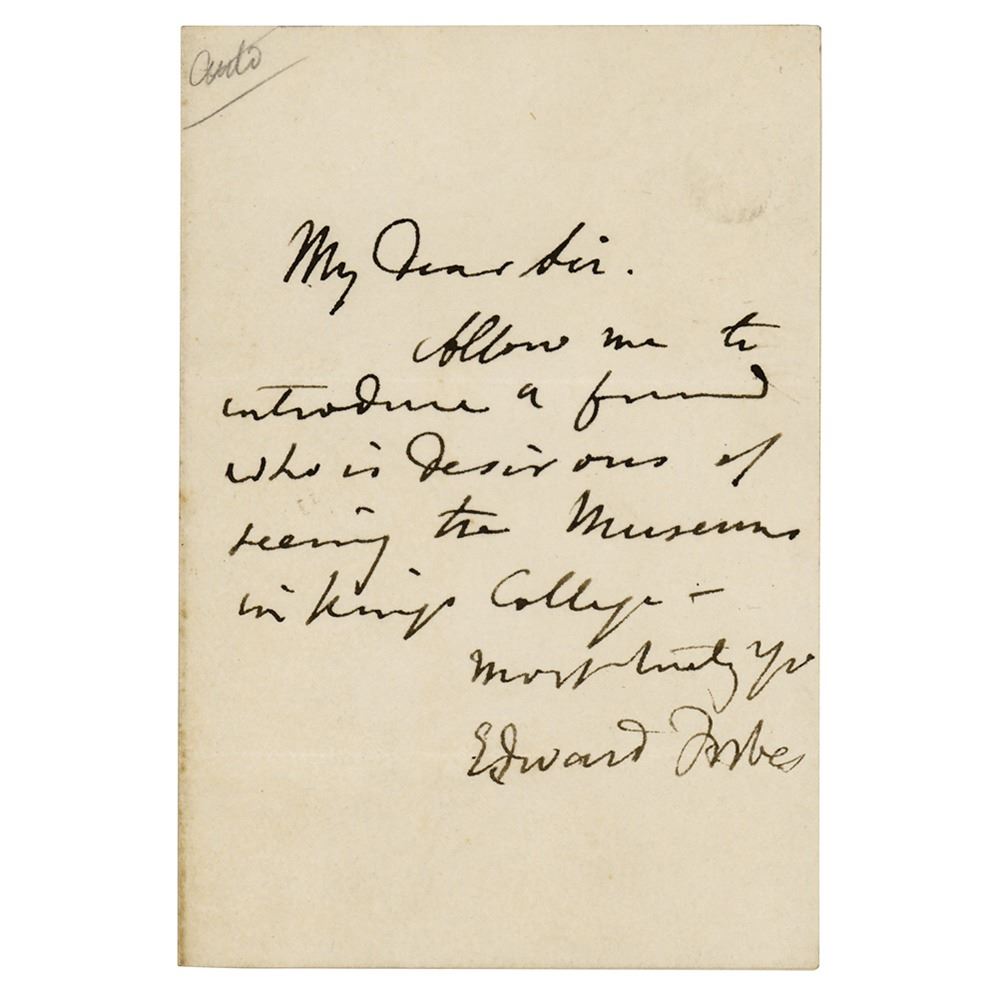 auto
My dear Sir.
Allow me to
introduce a friend
who is desirous of
seeing the Museums
in Kings College –
Most truly yrs
Edward Forbes